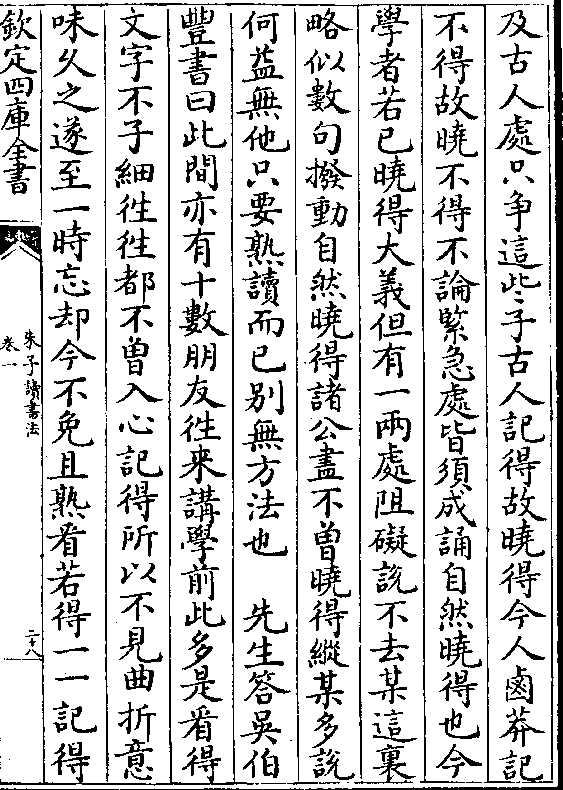 及古人處只争這些子古人記得故曉得今人鹵莽記
不得故曉不得不論緊急處皆須成誦自然曉得也今
學者若已曉得大義但有一兩處阻礙說不去某這裏
略似數句撥動自然曉得諸公盡不曽曉得縱某多說
何益無他只要熟讀而已别無方法也　先生答吳伯
豐書曰此間亦有十數朋友徃來講學前此多是看得
文字不子細徃徃都不曽入心記得所以不見曲折意
味久之遂至一時忘却今不免且熟看若得一一記得
欽定四庫全書
朱子讀書法
卷一
二十八